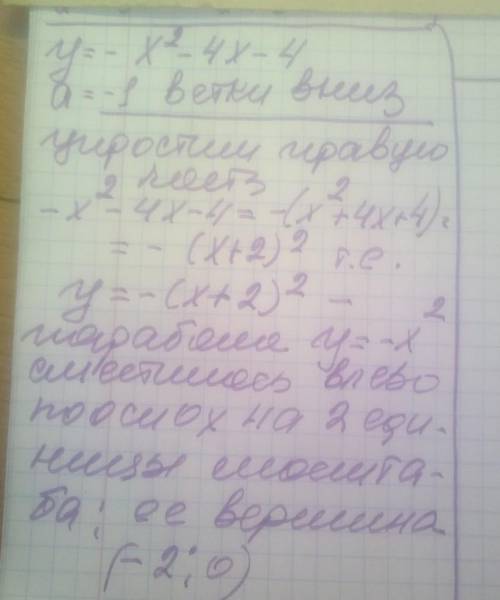 y = - x² - 4x - 4
a = -1 ветки вниз
упростим правую
часть
-x² - 4x - 4 = -(x² + 4x + 4) =
= - (x+2)² т.е.
y = -(x+2)² -
парабола y = -x²
сместилась влево
по оси OX на 2 еди-
ницы масшта-
ба; ее вершина
(-2; 0)